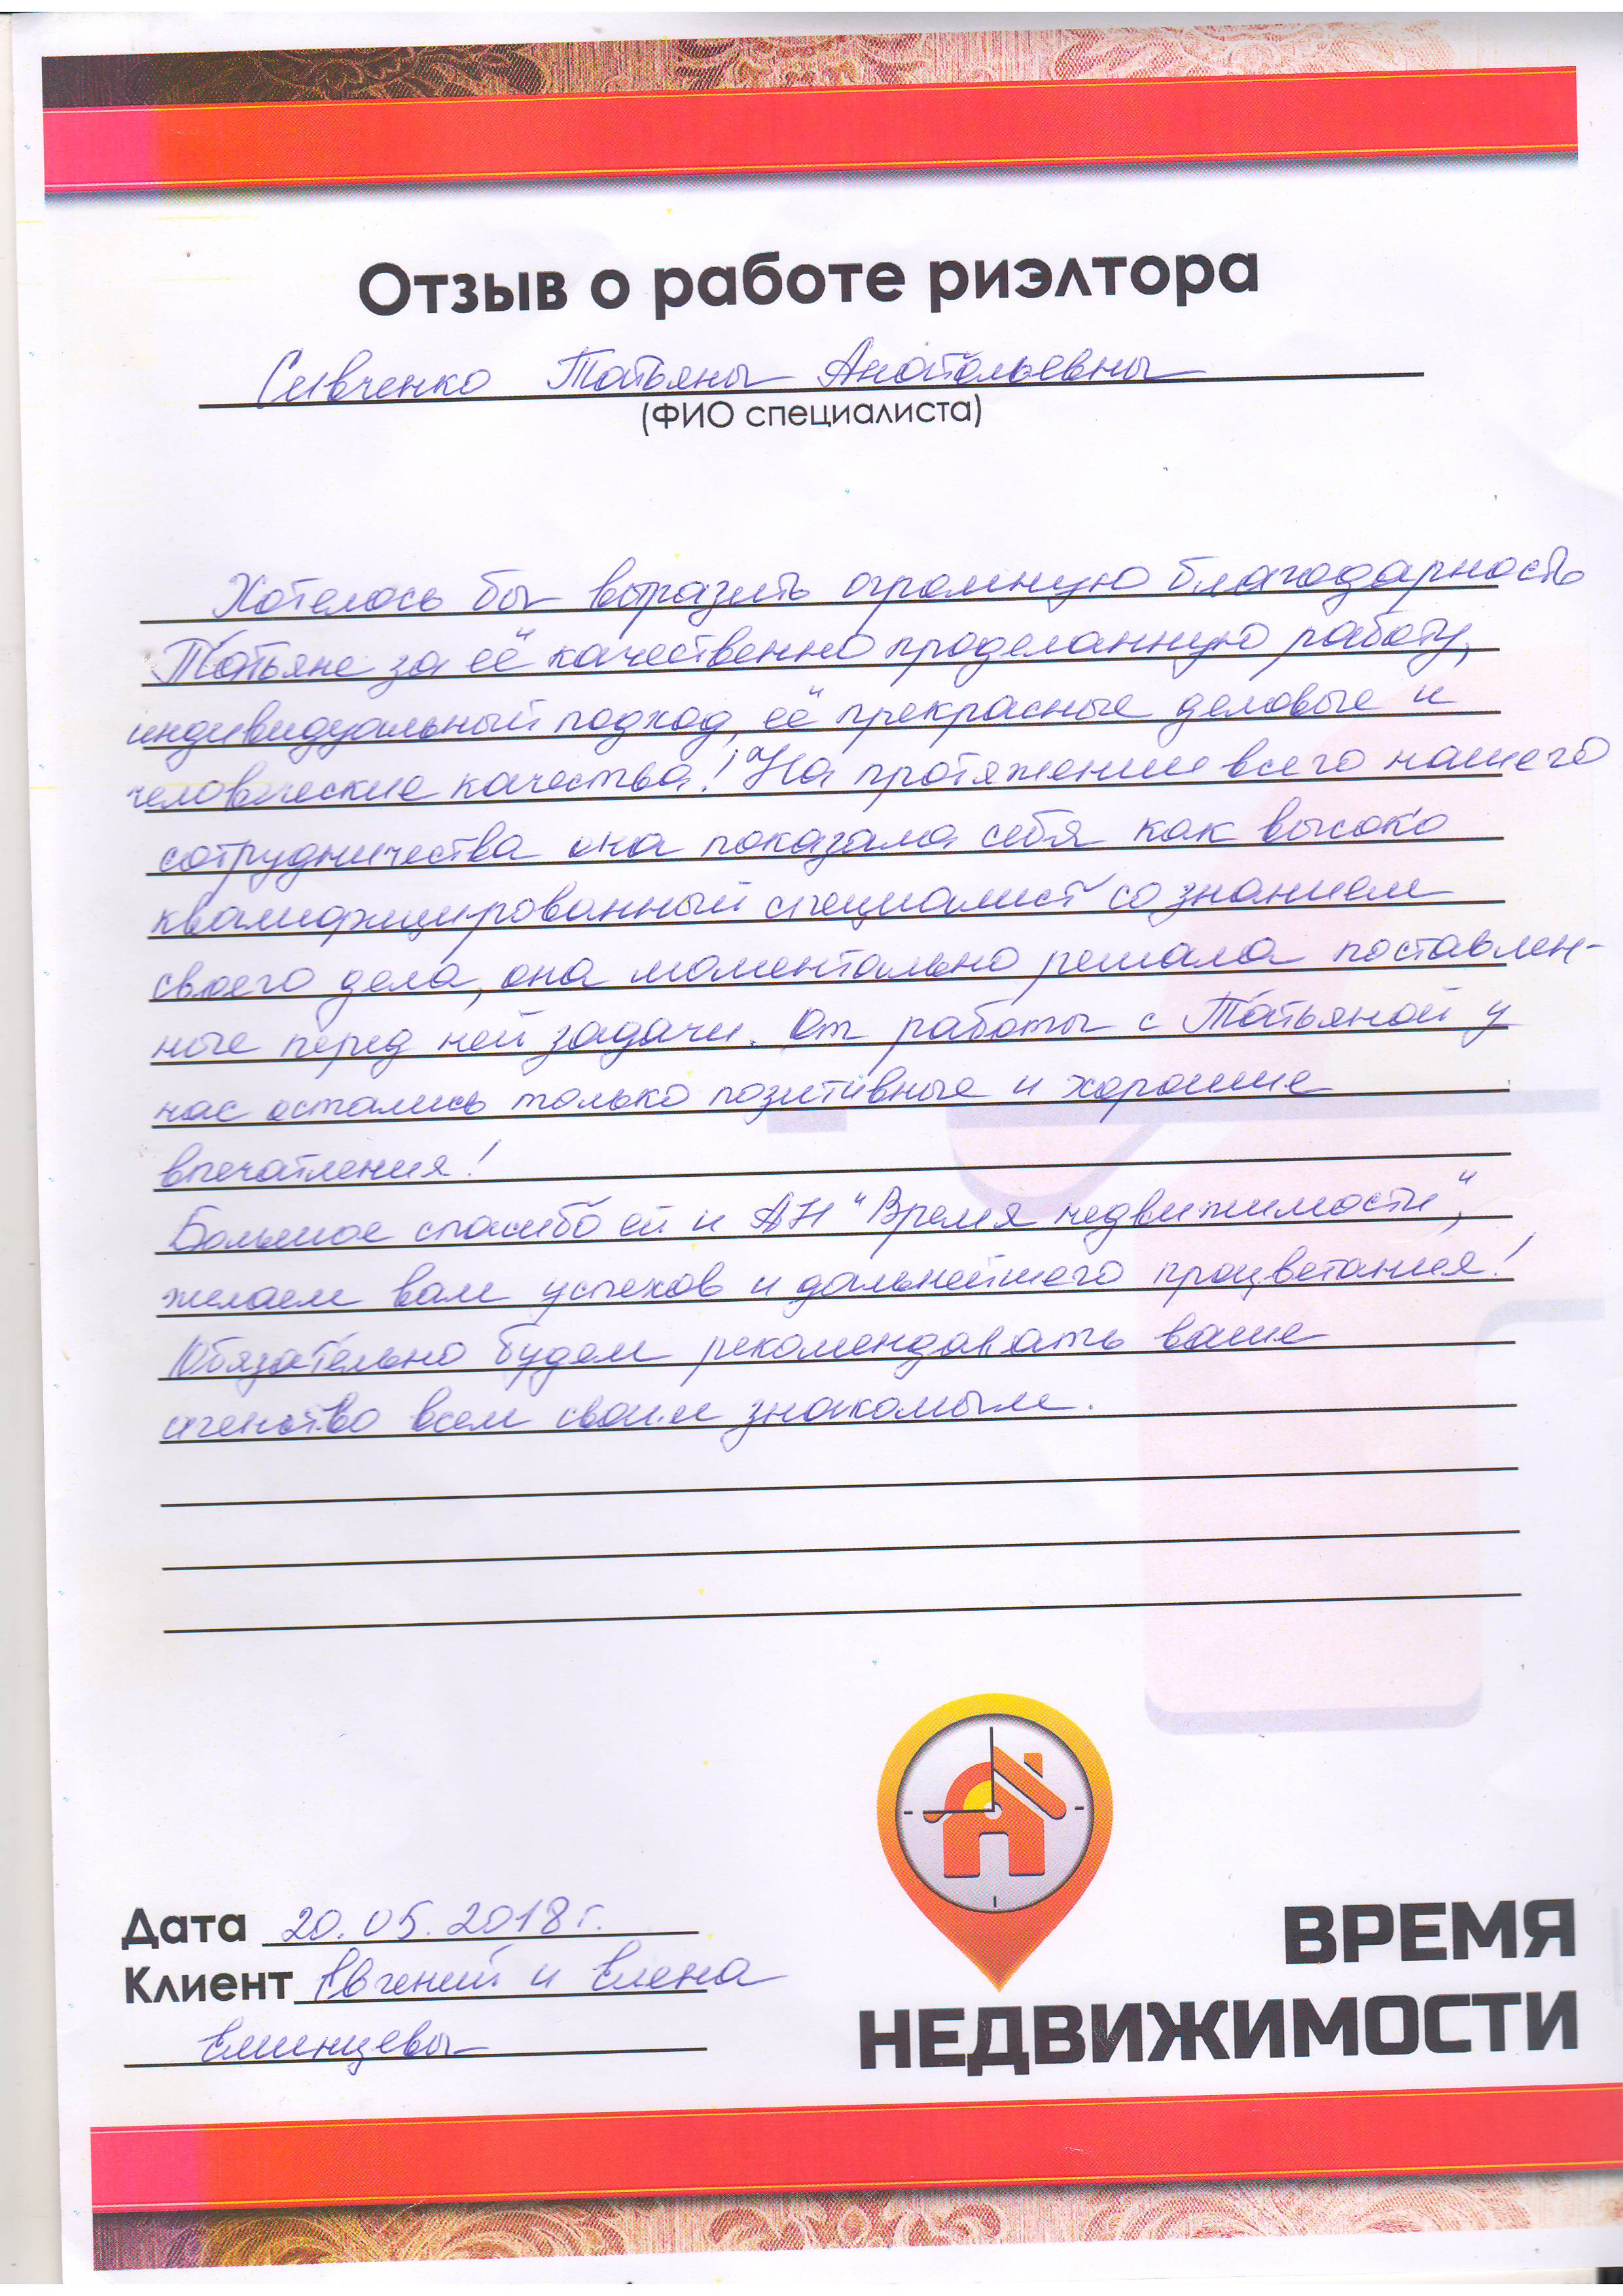 Отзыв о работе риэлтора
Сивченко Татьяны Анатольевны
(ФИО специалиста)
Хотелось бы выразить огромную благодарность
Татьяне за её качественно проделанную работу,
индивидуальный подход, её прекрасные деловые и
человеческие качества! На протяжении всего нашего
сотрудничества она показала себя как высоко
квалифицированный специалист со знанием
своего дела, она моментально решала поставлен-
ные перед ней задачи. От работы с Татьяной у
нас остались только позитивные и хорошие
впечатления!
Большое спасибо ей и АН "Время недвижимости",
желаем вам успехов и дальнейшего процветания!
Обязательно будем рекомендавать ваше
агенство всем своим знакомым.
Дата 20.05.2018 г.
Клиент Евгений и Елена
Елинцевы
ВРЕМЯ
НЕДВИЖИМОСТИ